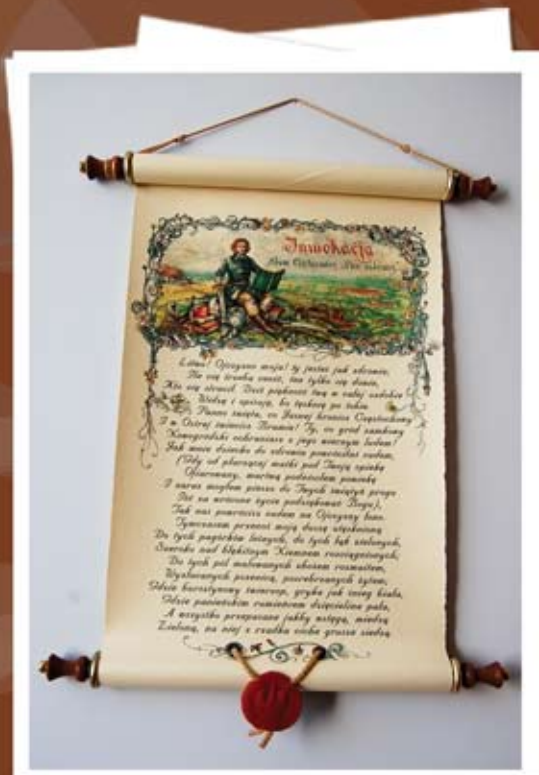 Inwokacja
Litwo! Ojczyzno moja! ty jesteś jak zdrowie.
Ile cię trzeba cenić, ten tylko się dowie,
Kto cię stracił. Dziś piękność twą w całej ozdobie
Widzę i opisuję, bo tęsknię po tobie.
Panno święta, co Jasnej bronisz Częstochowy
I w Ostrej świecisz Bramie! Ty, co gród zamkowy
Nowogródzki ochraniasz z jego wiernym ludem!
Jak mnie dziecko do zdrowia powróciłaś cudem,
(Gdy od płaczącej matki pod Twoją opiekę
Ofiarowany, martwą podniosłem powiekę
I zaraz mogłem pieszo do Twych świątyń progu
Iść za wrócone życie podziękować Bogu),
Tak nas powrócisz cudem na Ojczyzny łono.
Tymczasem przenoś moją duszę utęsknioną
Do tych pagórków leśnych, do tych łąk zielonych,
Szeroko nad błękitnym Niemnem rozciągnionych;
Do tych pól malowanych zbożem rozmaitem,
Wyzłacanych pszenicą, posrebrzanych żytem;
Gdzie bursztynowy świerzop, gryka jak śnieg biała,
Gdzie panieńskim rumieńcem dzięcielina pała,
A wszystko przepasane jakby wstęgą, miedzą
Zieloną, na niej z rzadka ciche grusze siedzą.